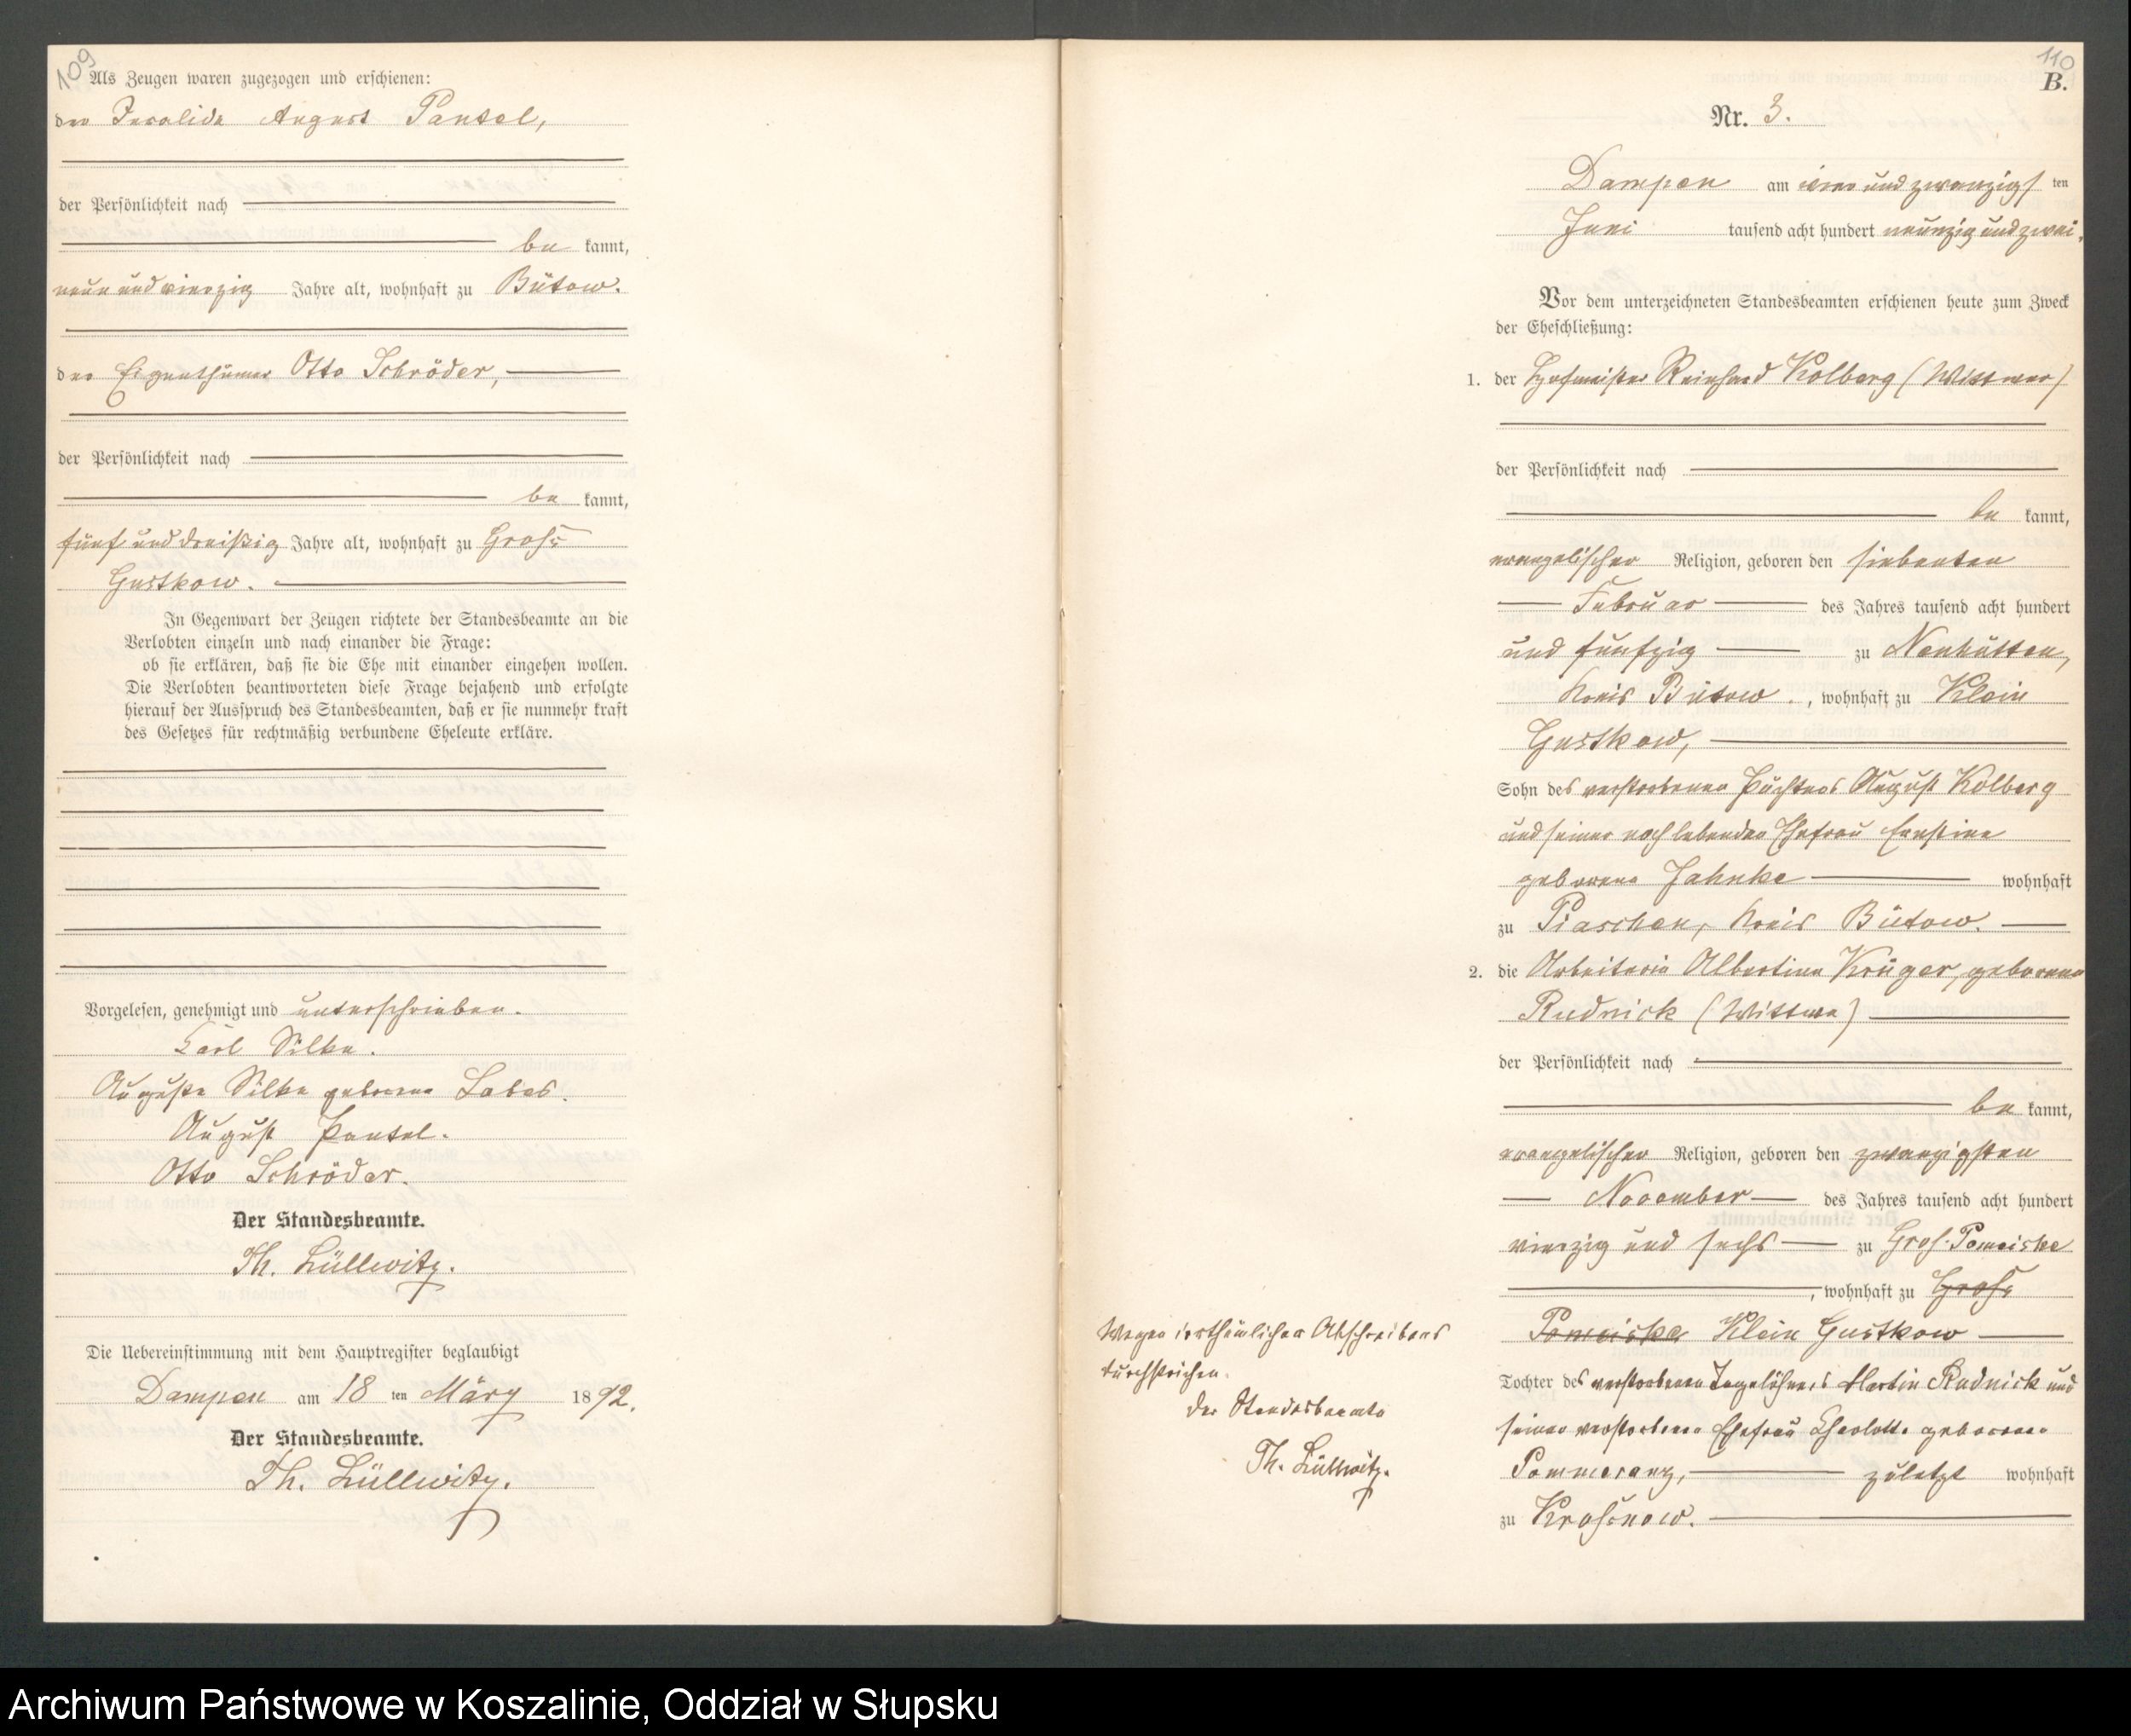 109
Als Zeugen waren zugezogen und erschienen:
der Invalide August Pantel,
der Persönlichkeit nach
be kannt,
neun und vierzig Jahre alt, wohnhaft zu Bütow.
der Eigenthümer Otto Schröder,
der Persönlichkeit nach
be kannt,
fünf und dreißig Jahre alt, wohnhaft zu Groß
Gustkow.
In Gegenwart der Zeugen richtete der Standesbeamte an die
Verlobten einzeln und nach einander die Frage:
ob sie erklären, daß sie die Ehe mit einander eingehen wollen.
Die Verlobten beantworteten diese Frage bejahend und erfolgte
hierauf der Ausspruch des Standesbeamten, daß er sie nunmehr kraft
des Gesetzes für rechtmäßig verbundene Eheleute erkläre.
Vorgelesen, genehmigt und unterschrieben.
Carl Silke.
Auguste Silke geborene Labes.
August Pantel.
Otto Schröder.
Der Standesbeamte.
Th. Lüllwitz.
Die Uebereinstimmung mit dem Hauptregister beglaubigt
Dampen am 18 ten März 1892.
Der Standesbeamte.
Th. Lüllwitz.
110
B.
Nr. 3.
Dampen am ein und zwanzigs ten
Juni tausend acht hundert neunzig und zwei.
Vor dem unterzeichneten Standesbeamten erschienen heute zum Zweck
der Eheschließung:
1. der Hofmeister Reinhard Kolberg (Wittwer)
der Persönlichkeit nach
be kannt,
evangelischer Religion, geboren den siebenten
Februar des Jahres tausend acht hundert
und fünfzig zu Neuhütten,
Kreis Bütow, wohnhaft zu Klein
Gustkow,
Sohn des verstorbenen Pächters August Kolberg
und seiner noch lebenden Ehefrau Ernstine
geborene Jahnke wohnhaft
zu Piaschen, Kreis Bütow.
2. die Arbeiterin Albertine Krüger, geborene
Rudnick (Wittwe)
der Persönlichkeit nach
be kannt,
evangelischer Religion, geboren den zwanzigsten
November des Jahres tausend acht hundert
vierzig und sechs zu Groß-Pomeiske
, wohnhaft zu Groß
Pomeiske Klein Gustkow
Tochter des verstorbenen Tagelöhners Martin Rudnick und
seiner verstorbenen Ehefrau Charlotte geborene
Pommeranz, zuletzt wohnhaft
zu Kroßnow.
Wegen irrthümlichen Abschreibens
durchstrichen.
Der Standesbeamte
Th. Lüllwitz.
Archiwum Państwowe w Koszalinie, Oddział w Słupsku